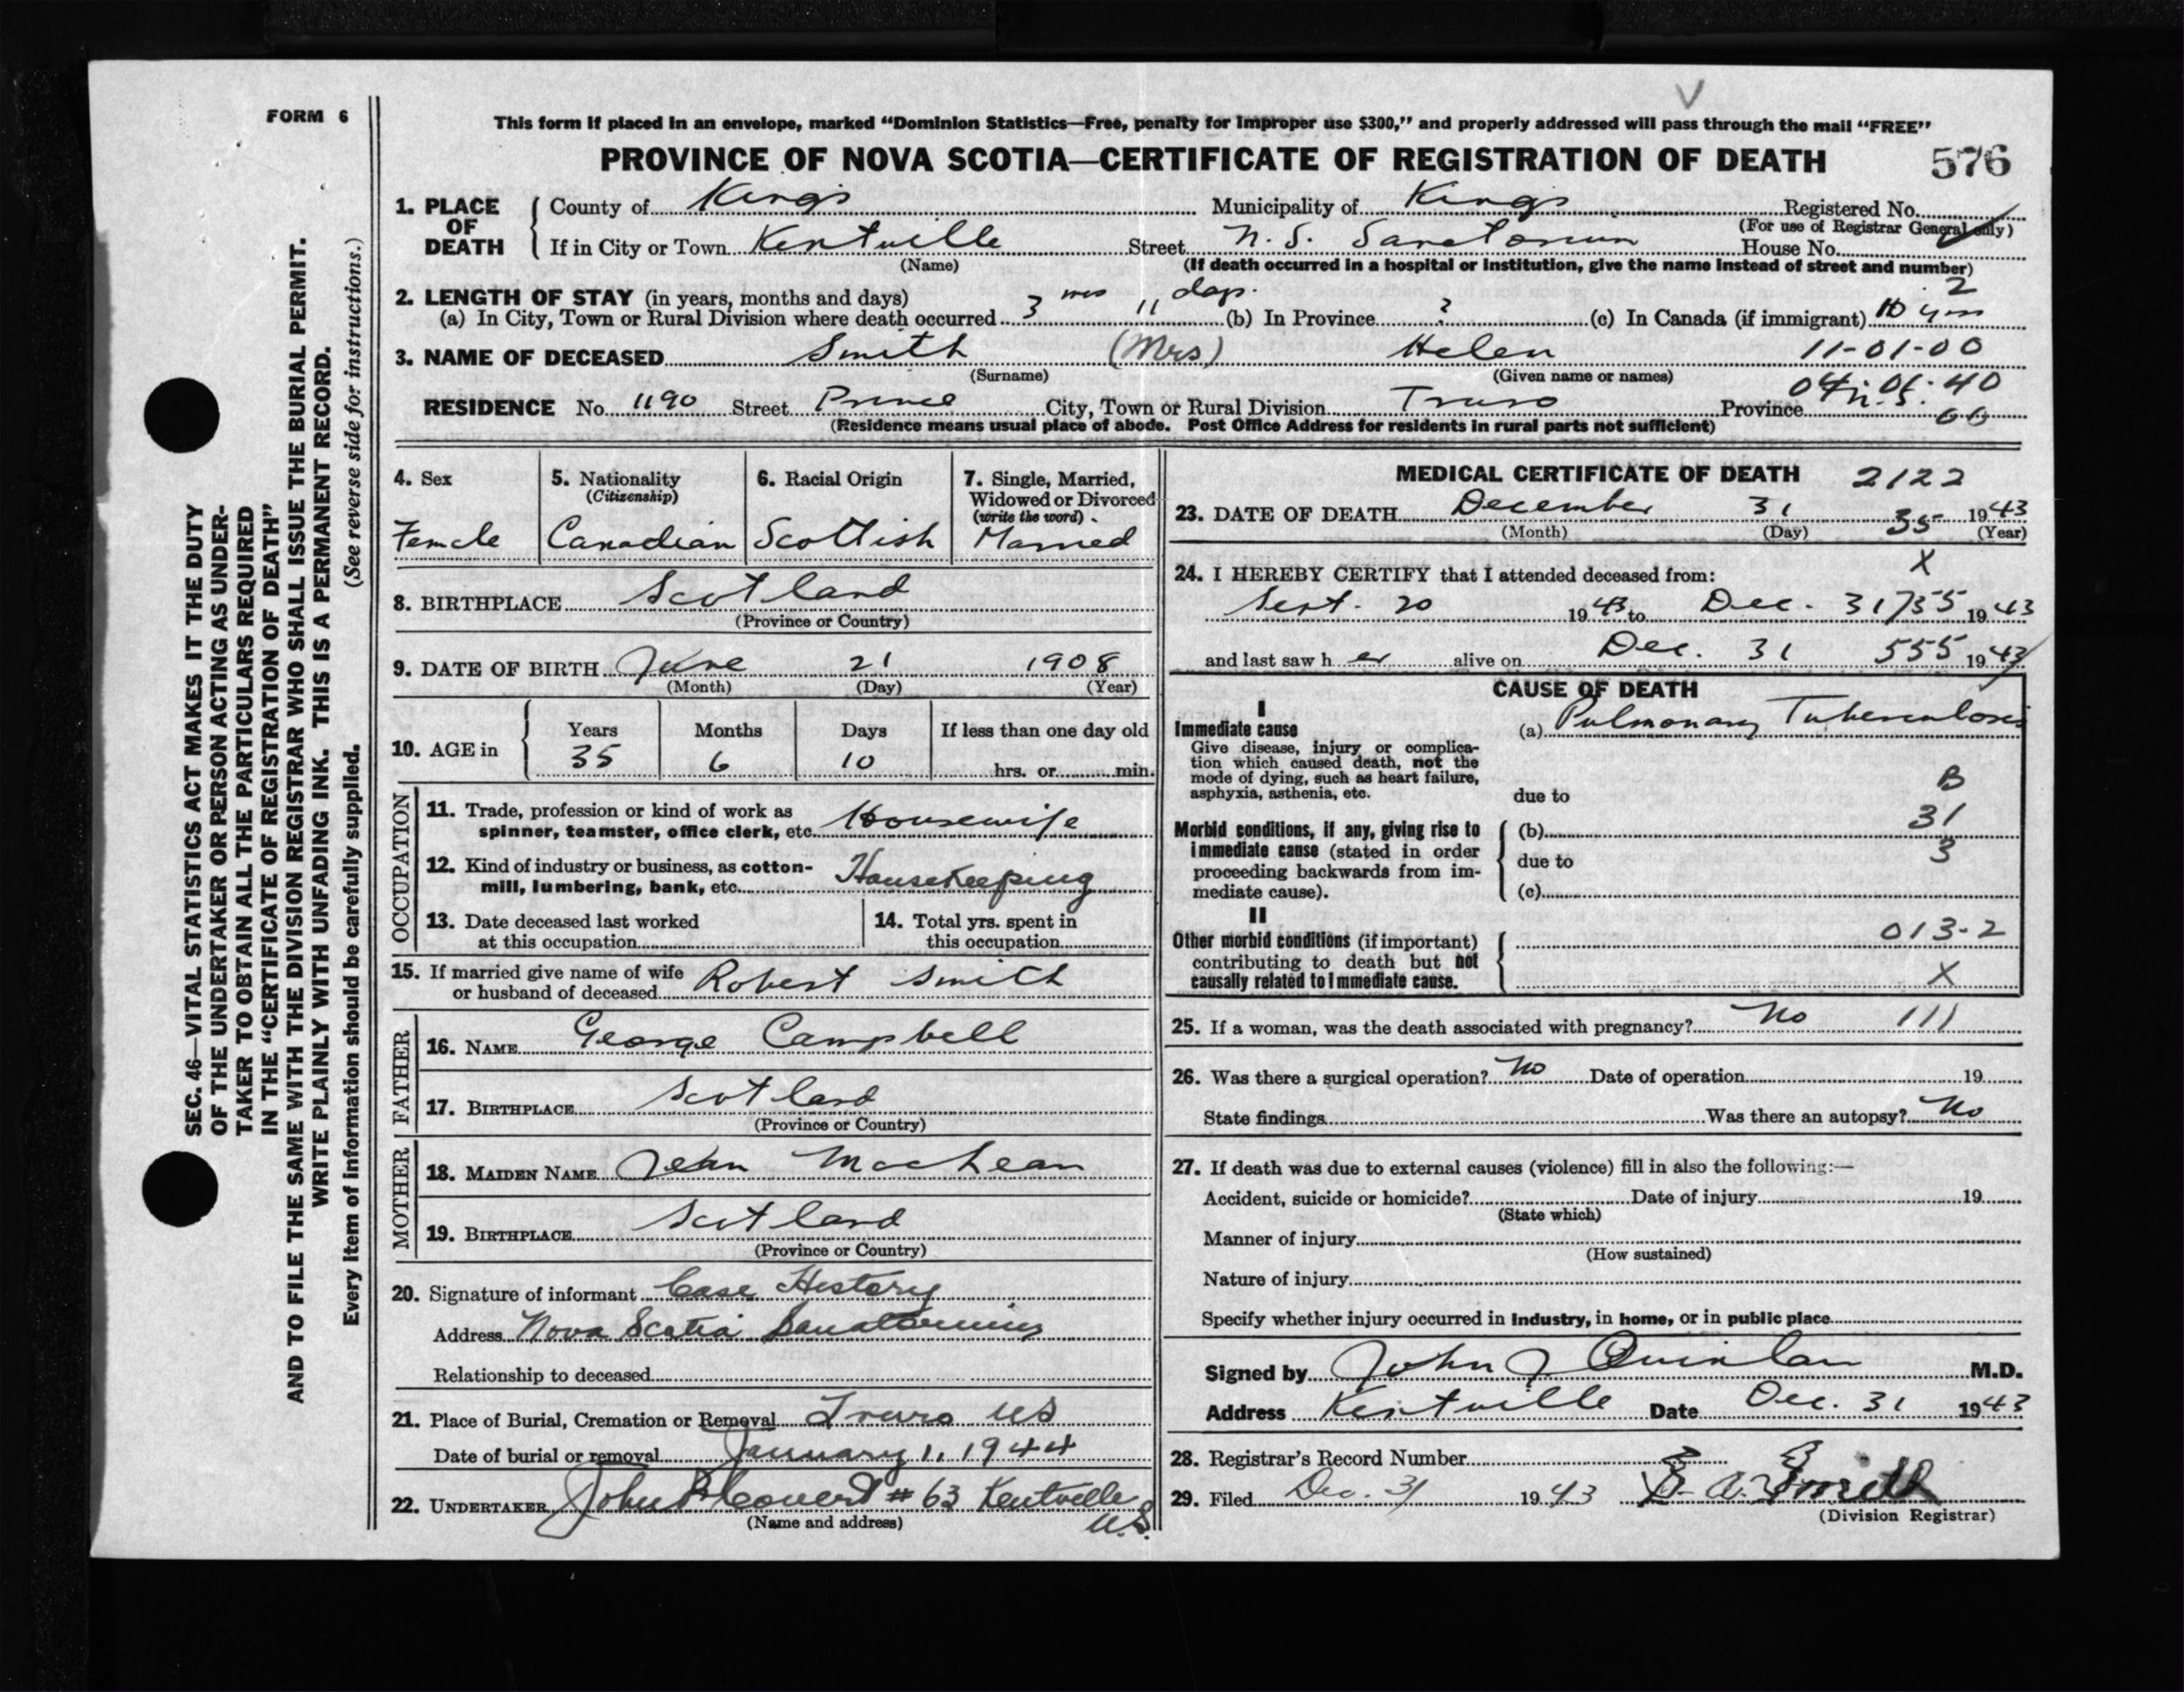 FORM 6
This form if placed in an envelope, marked “Dominion Statistics—Free, penalty for improper use $300,” and properly addressed will pass through the mail “FREE”
PROVINCE OF NOVA SCOTIA—CERTIFICATE OF REGISTRATION OF DEATH 576
1. PLACE OF DEATH { County of Kings Municipality of Kings Registered No.
(For use of Registrar General only)
If in City or Town Kentville Street N. S. Sanatorium House No.
(Name) (If death occurred in a hospital or institution, give the name instead of street and number)
2. LENGTH OF STAY (in years, months and days) 2
(a) In City, Town or Rural Division where death occurred 3 mos 11 days. (b) In Province ? (c) In Canada (if immigrant) 10 yrs
3. NAME OF DECEASED Smith (Mrs) Helen 11-01-00
(Surname) (Given name or names) 04-05-40
RESIDENCE No. 1190 Street Prince City, Town or Rural Division Truro Province N.S. 00
(Residence means usual place of abode. Post Office Address for residents in rural parts not sufficient)
4. Sex Female
5. Nationality (Citizenship) Canadian
6. Racial Origin Scottish
7. Single, Married, Widowed or Divorced (write the word) Married
8. BIRTHPLACE Scotland
(Province or Country)
9. DATE OF BIRTH June 21 1908
(Month) (Day) (Year)
10. AGE in { Years Months Days If less than one day old
35 6 10 hrs. or min.
OCCUPATION
11. Trade, profession or kind of work as
spinner, teamster, office clerk, etc. Housewife
12. Kind of industry or business, as cotton-
mill, lumbering, bank, etc. Housekeeping
13. Date deceased last worked
at this occupation
14. Total yrs. spent in
this occupation
15. If married give name of wife
or husband of deceased Robert Smith
FATHER
16. NAME George Campbell
17. BIRTHPLACE Scotland
(Province or Country)
MOTHER
18. MAIDEN NAME Jean MacLean
19. BIRTHPLACE Scotland
(Province or Country)
20. Signature of informant Case History
Address Nova Scotia Sanatorium
Relationship to deceased
21. Place of Burial, Cremation or Removal Truro NS
Date of burial or removal January 1, 1944
22. UNDERTAKER John Covert # 63 Kentville
(Name and address) N.S.
MEDICAL CERTIFICATE OF DEATH 2122
23. DATE OF DEATH December 31 35 1943
(Month) (Day) (Year)
X
24. I HEREBY CERTIFY that I attended deceased from:
Sept. 20 1943 to Dec. 31 735 1943
and last saw her alive on Dec. 31 555 1943
CAUSE OF DEATH
I
Immediate cause (a) Pulmonary Tuberculosis
Give disease, injury or complica-
tion which caused death, not the
mode of dying, such as heart failure,
asphyxia, asthenia, etc. due to B
Morbid conditions, if any, giving rise to (b) 31
immediate cause (stated in order due to 3
proceeding backwards from im-
mediate cause). (c)
II
Other morbid conditions (if important) 013-2
contributing to death but not
causally related to immediate cause. X
25. If a woman, was the death associated with pregnancy? No 111
26. Was there a surgical operation? No Date of operation 19
State findings Was there an autopsy? No
27. If death was due to external causes (violence) fill in also the following:—
Accident, suicide or homicide? Date of injury 19
(State which)
Manner of injury
(How sustained)
Nature of injury
Specify whether injury occurred in industry, in home, or in public place
Signed by John J Quinlan M.D.
Address Kentville Date Dec. 31 1943
28. Registrar's Record Number
29. Filed Dec. 31 1943 A. Smith
(Division Registrar)
SEC. 46—VITAL STATISTICS ACT MAKES IT THE DUTY
OF THE UNDERTAKER OR PERSON ACTING AS UNDER-
TAKER TO OBTAIN ALL THE PARTICULARS REQUIRED
IN THE “CERTIFICATE OF REGISTRATION OF DEATH”
AND TO FILE THE SAME WITH THE DIVISION REGISTRAR WHO SHALL ISSUE THE BURIAL PERMIT.
WRITE PLAINLY WITH UNFADING INK. THIS IS A PERMANENT RECORD.
Every item of information should be carefully supplied. (See reverse side for instructions.)